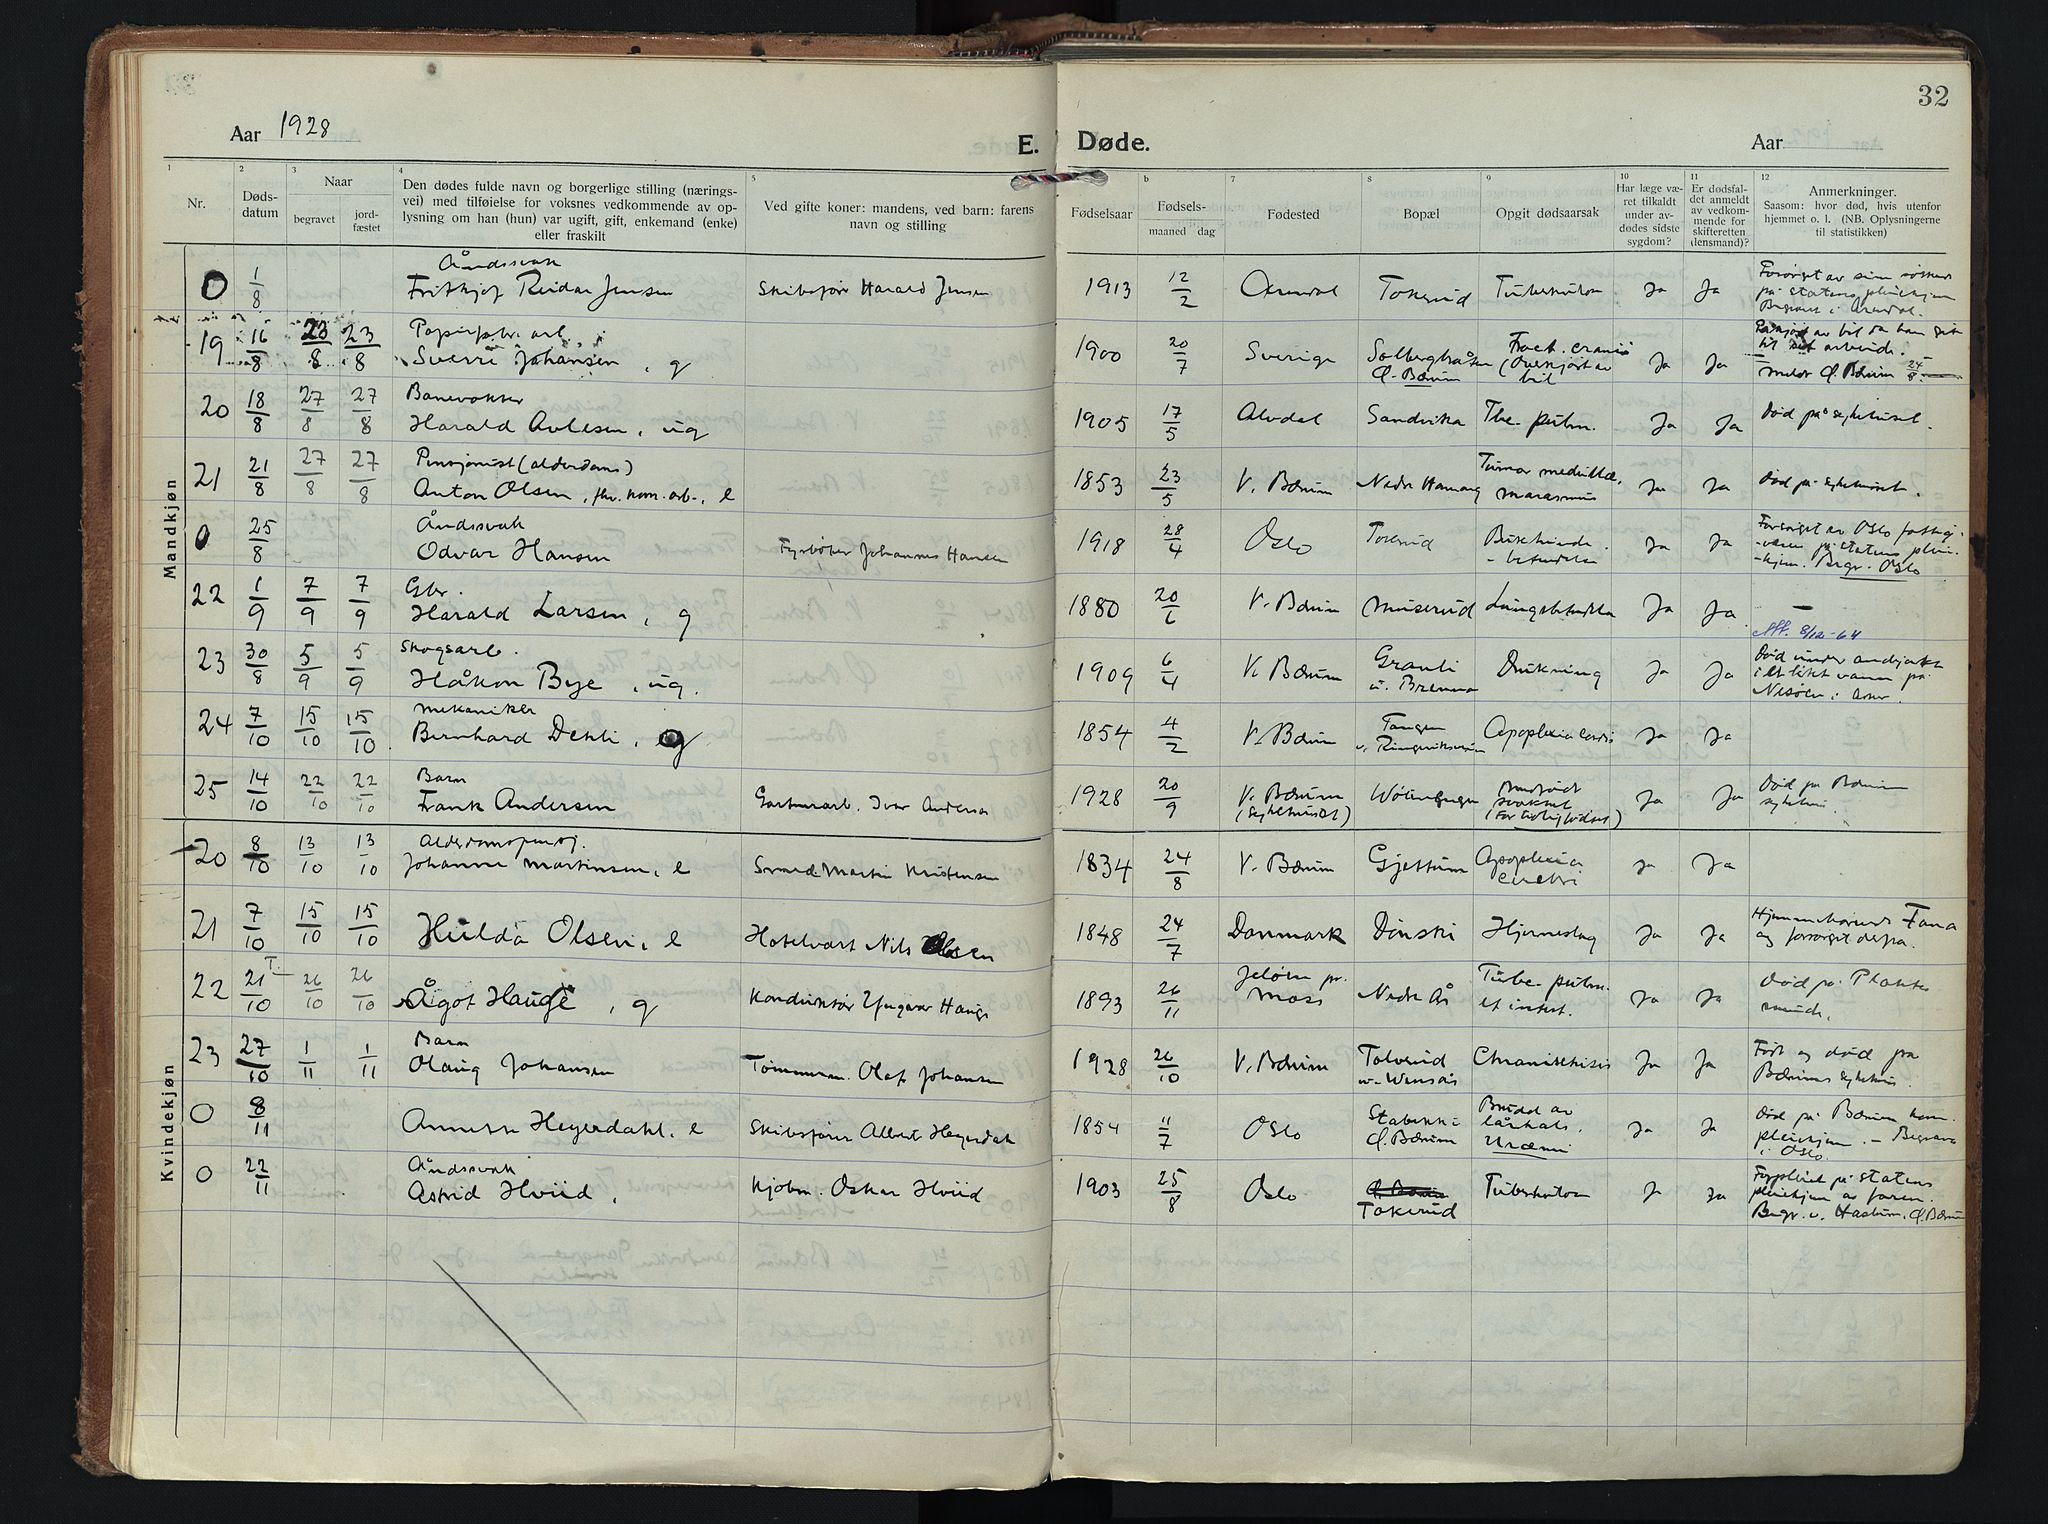 32
Aar 1928
E.
Døde.
Aar
1
2
3
4
5
6
7
8
9
10
11
12
Nr.
Døds-
datum
Naar
begravet
jord-
fæstet
Den dødes fulde navn og borgerlige stilling (nærings-
vei) med tilføielse for voksnes vedkommende av op-
lysning om han (hun) var ugift, gift, enkemand (enke)
eller fraskilt
Ved gifte koner: mandens, ved barn: farens
navn og stilling
Fødselsaar
Fødsels-
maaned dag
Fødested
Bopæl
Opgit dødsaarsak
Har læge væ-
ret tilkaldt
under av-
dødes sidste
sygdom?
Er dødsfal-
det anmeldt
av vedkom-
mende for
skifteretten
(lensmand)?
Anmerkninger.
Saasom: hvor død, hvis utenfor
hjemmet o. l. (NB. Oplysningerne
til statistikken)
Mandkjøn
0 1/8 Åndssvak
Fritkjof Reidar Jensen Skibsfører Harald Jensen 1913 12/2 Arendal Tokerud Tuberkulose Ja Ja Forsørget av sine
på statens pleiehjem
Begravet i Arendal.
19 16/8 23/8 23/8 Papirfabr. arb.
Sverre Johansen, g 1900 20/7 Sverige Solberg
Ø. Bærum Fract. cranii
(Overkjørt av
bil Ja Ja av bil da han gik
til sit arbeide.
meldt Ø. Bærum 24/8
20 18/8 27/8 27/8 Banevokter
Harald Avlesen, ug 1905 17/5 Alvdal Sandvika Tbc. pulm. Ja Ja Død på sykehuset.
21 21/8 27/8 27/8 Pensjonist (alderdoms)
Anton Olsen, fhv. kom. arb., e 1853 23/5 V. Bærum Nedre Hamang Tumor medullæ,
marasmus Ja Ja Død på sykehuset.
0 25/8 Åndssvak
Odvar Hansen Fyrbøter Johannes Hansen 1918 28/4 Oslo Tokerud Bukhinde-
-betendelse Ja Ja Forsørget av Oslo fattig-
-vesen på statens pleie-
-hjem. Begr. Oslo
22 1/9 7/9 7/9 Gbr.
Harald Larsen, g 1880 20/6 V. Bærum Muserud Lungebetendelse Ja Ja —
Aff. 8/12-64
23 30/8 5/9 5/9 Skogsarb.
Håkon Bye, ug. 1909 6/4 V. Bærum Granli
u. Brenna Drukning Ja Ja Død under andjakt
i et litet vann på
Nesøen i Asker
24 7/10 15/10 15/10 Mekaniker
Bernhard Dehli, g 1854 4/2 V. Bærum Tangen
v. Ringeriksveien Apoplexia cordis Ja Ja
25 14/10 22/10 22/10 Barn
Frank Andersen Gartnerarb. Ivar Andersen 1928 20/9 V. Bærum
(Sykehuset) Medfødt
svakhet
(For tidlig fødsel) Ja Ja Død på Bærum
sykehus
Kvindekjøn
20 8/10 13/10 13/10 Alderdomspensj.
Johanne Martinsen, e Martin Kristensen 1834 24/8 V. Bærum Gjettum Apoplexia
cerebri Ja Ja
21 7/10 15/10 15/10 Hulda Olsen, e Hotelvært Nils Olsen 1848 24/7 Danmark Dønski Hjerneslag Ja Ja Hjemmehørende Fana
og forsørget derfra.
22 21/10 T. 26/10 26/10 Ågot Hauge, g Konduktør Yngvar Hauge 1893 26/11 Jeløen pr.
Moss Nedre Ås Tube. pulm.
et intest. Ja Ja Død på
23 27/10 1/11 1/11 Barn
Olaug Johansen Tømmerm. Olaf Johansen 1928 26/10 V. Bærum Tolverud
Ja Ja Født og død på
Bærums sykehus.
0 8/11 Heyerdahl, e Skibsfører Albert Heyerdahl 1854 11/7 Oslo Stabekk i
Ø. Bærum Brudd av
lårhals.
Uræmi Ja Ja Død på Bærum kom.
pleiehjem. — Begravet
i Oslo.
0 22/11 Åndssvak
Astrid Hviid, Kjøbm. Oskar Hviid 1903 25/8 Oslo Tokerud Tuberkulose Ja Ja Forpleiet på statens
pleiehjem av faren.
Begr. v. Haslum, Ø. Bærum